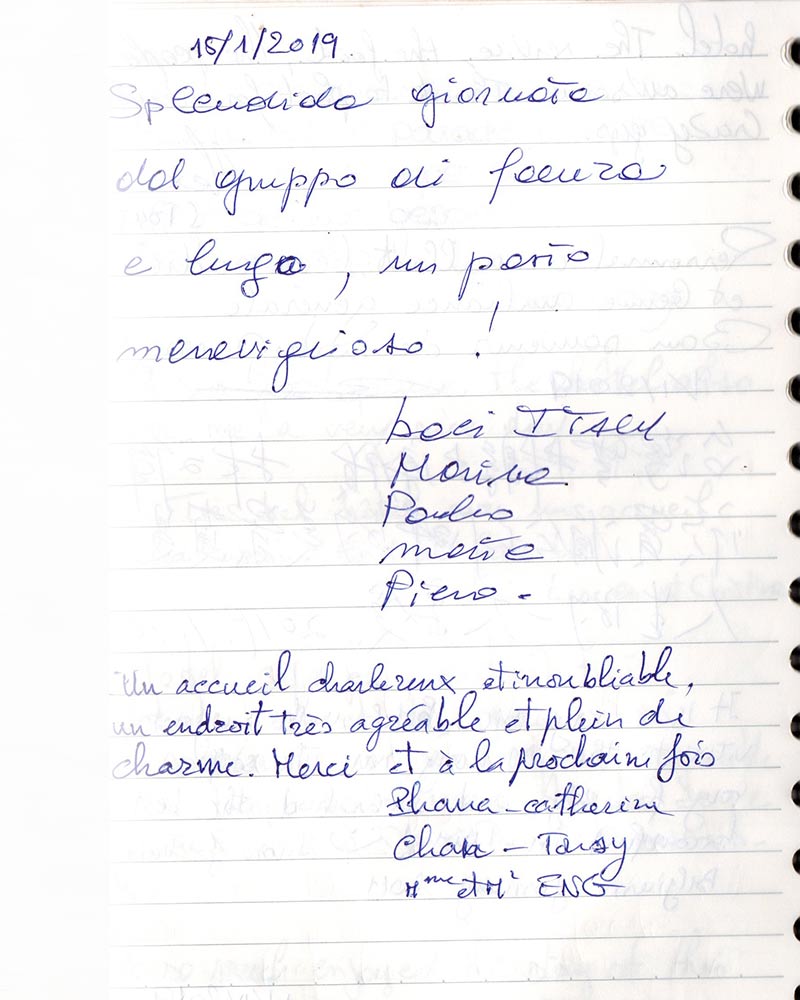 15/1/2019
Splendida giornata
dal gruppo di faenza
e lugo, un posto
meraviglioso !
baci ITALY
Marina
Paolo
Piero -
Un accueil chaleureux et inoubliable,
un endroit très agréable et plein de
charme. Merci et à la prochaine fois
Mme et Mr ENG